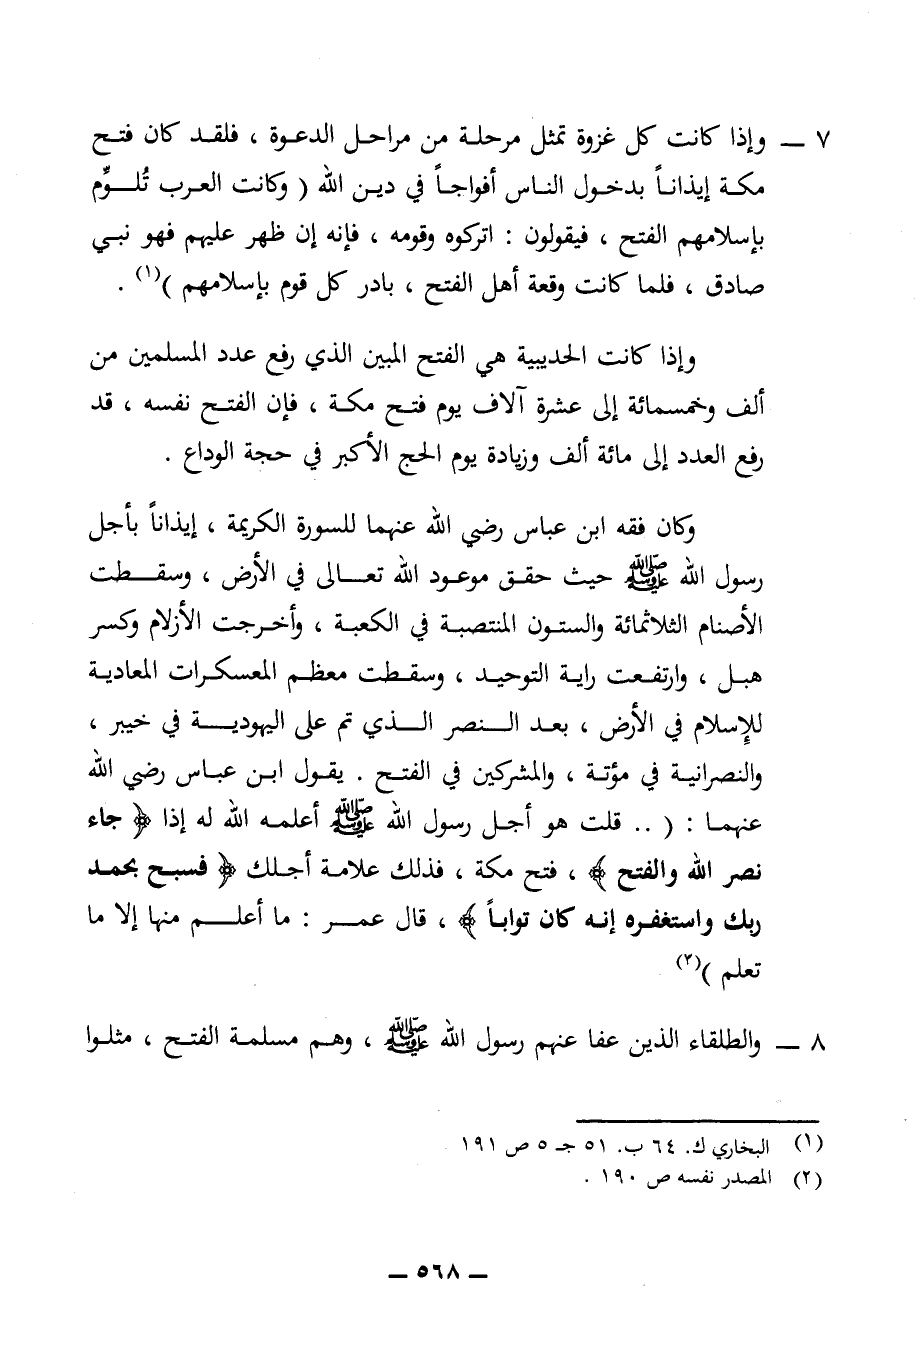 ٧ ــ وإذا كانت كل غزوة تمثل مرحلة من مراحل الدعوة ، فلقد كان فتح
مكة إيذاناً بدخول الناس أفواجاً في دين الله ( وكانت العرب تُلوِّم
بإسلامهم الفتح ، فيقولون : اتركوه وقومه ، فإنه إن ظهر عليهم فهو نبي
صادق ، فلما كانت وقعة أهل الفتح ، بادر كل قوم بإسلامهم )(١) .
وإذا كانت الحديبية هي الفتح المبين الذي رفع عدد المسلمين من
ألف وخمسمائة إلى عشرة آلاف يوم فتح مكة ، فإن الفتح نفسه ، قد
رفع العدد إلى مائة ألف وزيادة يوم الحج الأكبر في حجة الوداع .
وكان فقه ابن عباس رضي الله عنهما للسورة الكريمة ، إيذاناً بأجل
رسول الله ﷺ حيث حقق موعود الله تعالى في الأرض ، وسقطت
الأصنام الثلاثمائة والستون المنتصبة في الكعبة ، وأخرجت الأزلام وكسر
هبل ، وارتفعت راية التوحيد ، وسقطت معظم المعسكرات المعادية
للإسلام في الأرض ، بعد النصر الذي تم على اليهودية في خيبر ،
والنصرانية في مؤتة ، والمشركين في الفتح . يقول ابن عباس رضي الله
عنهما : ( .. قلت هو أجل رسول الله ﷺ أعلمه الله له إذا ﴿ جاء
نصر الله والفتح ﴾ ، فتح مكة ، فذلك علامة أجلك ﴿ فسبح بحمد
ربك واستغفره إنه كان تواباً ﴾ ، قال عمر : ما أعلم منها إلا ما
تعلم )(٢)
٨ ــ والطلقاء الذين عفا عنهم رسول الله ﷺ ، وهم مسلمة الفتح ، مثلوا
(١) البخاري ك. ٦٤ ب. ٥١ جـ ٥ ص ١٩١
(٢) المصدر نفسه ص ١٩٠ .
ــ ٥٦٨ ــ